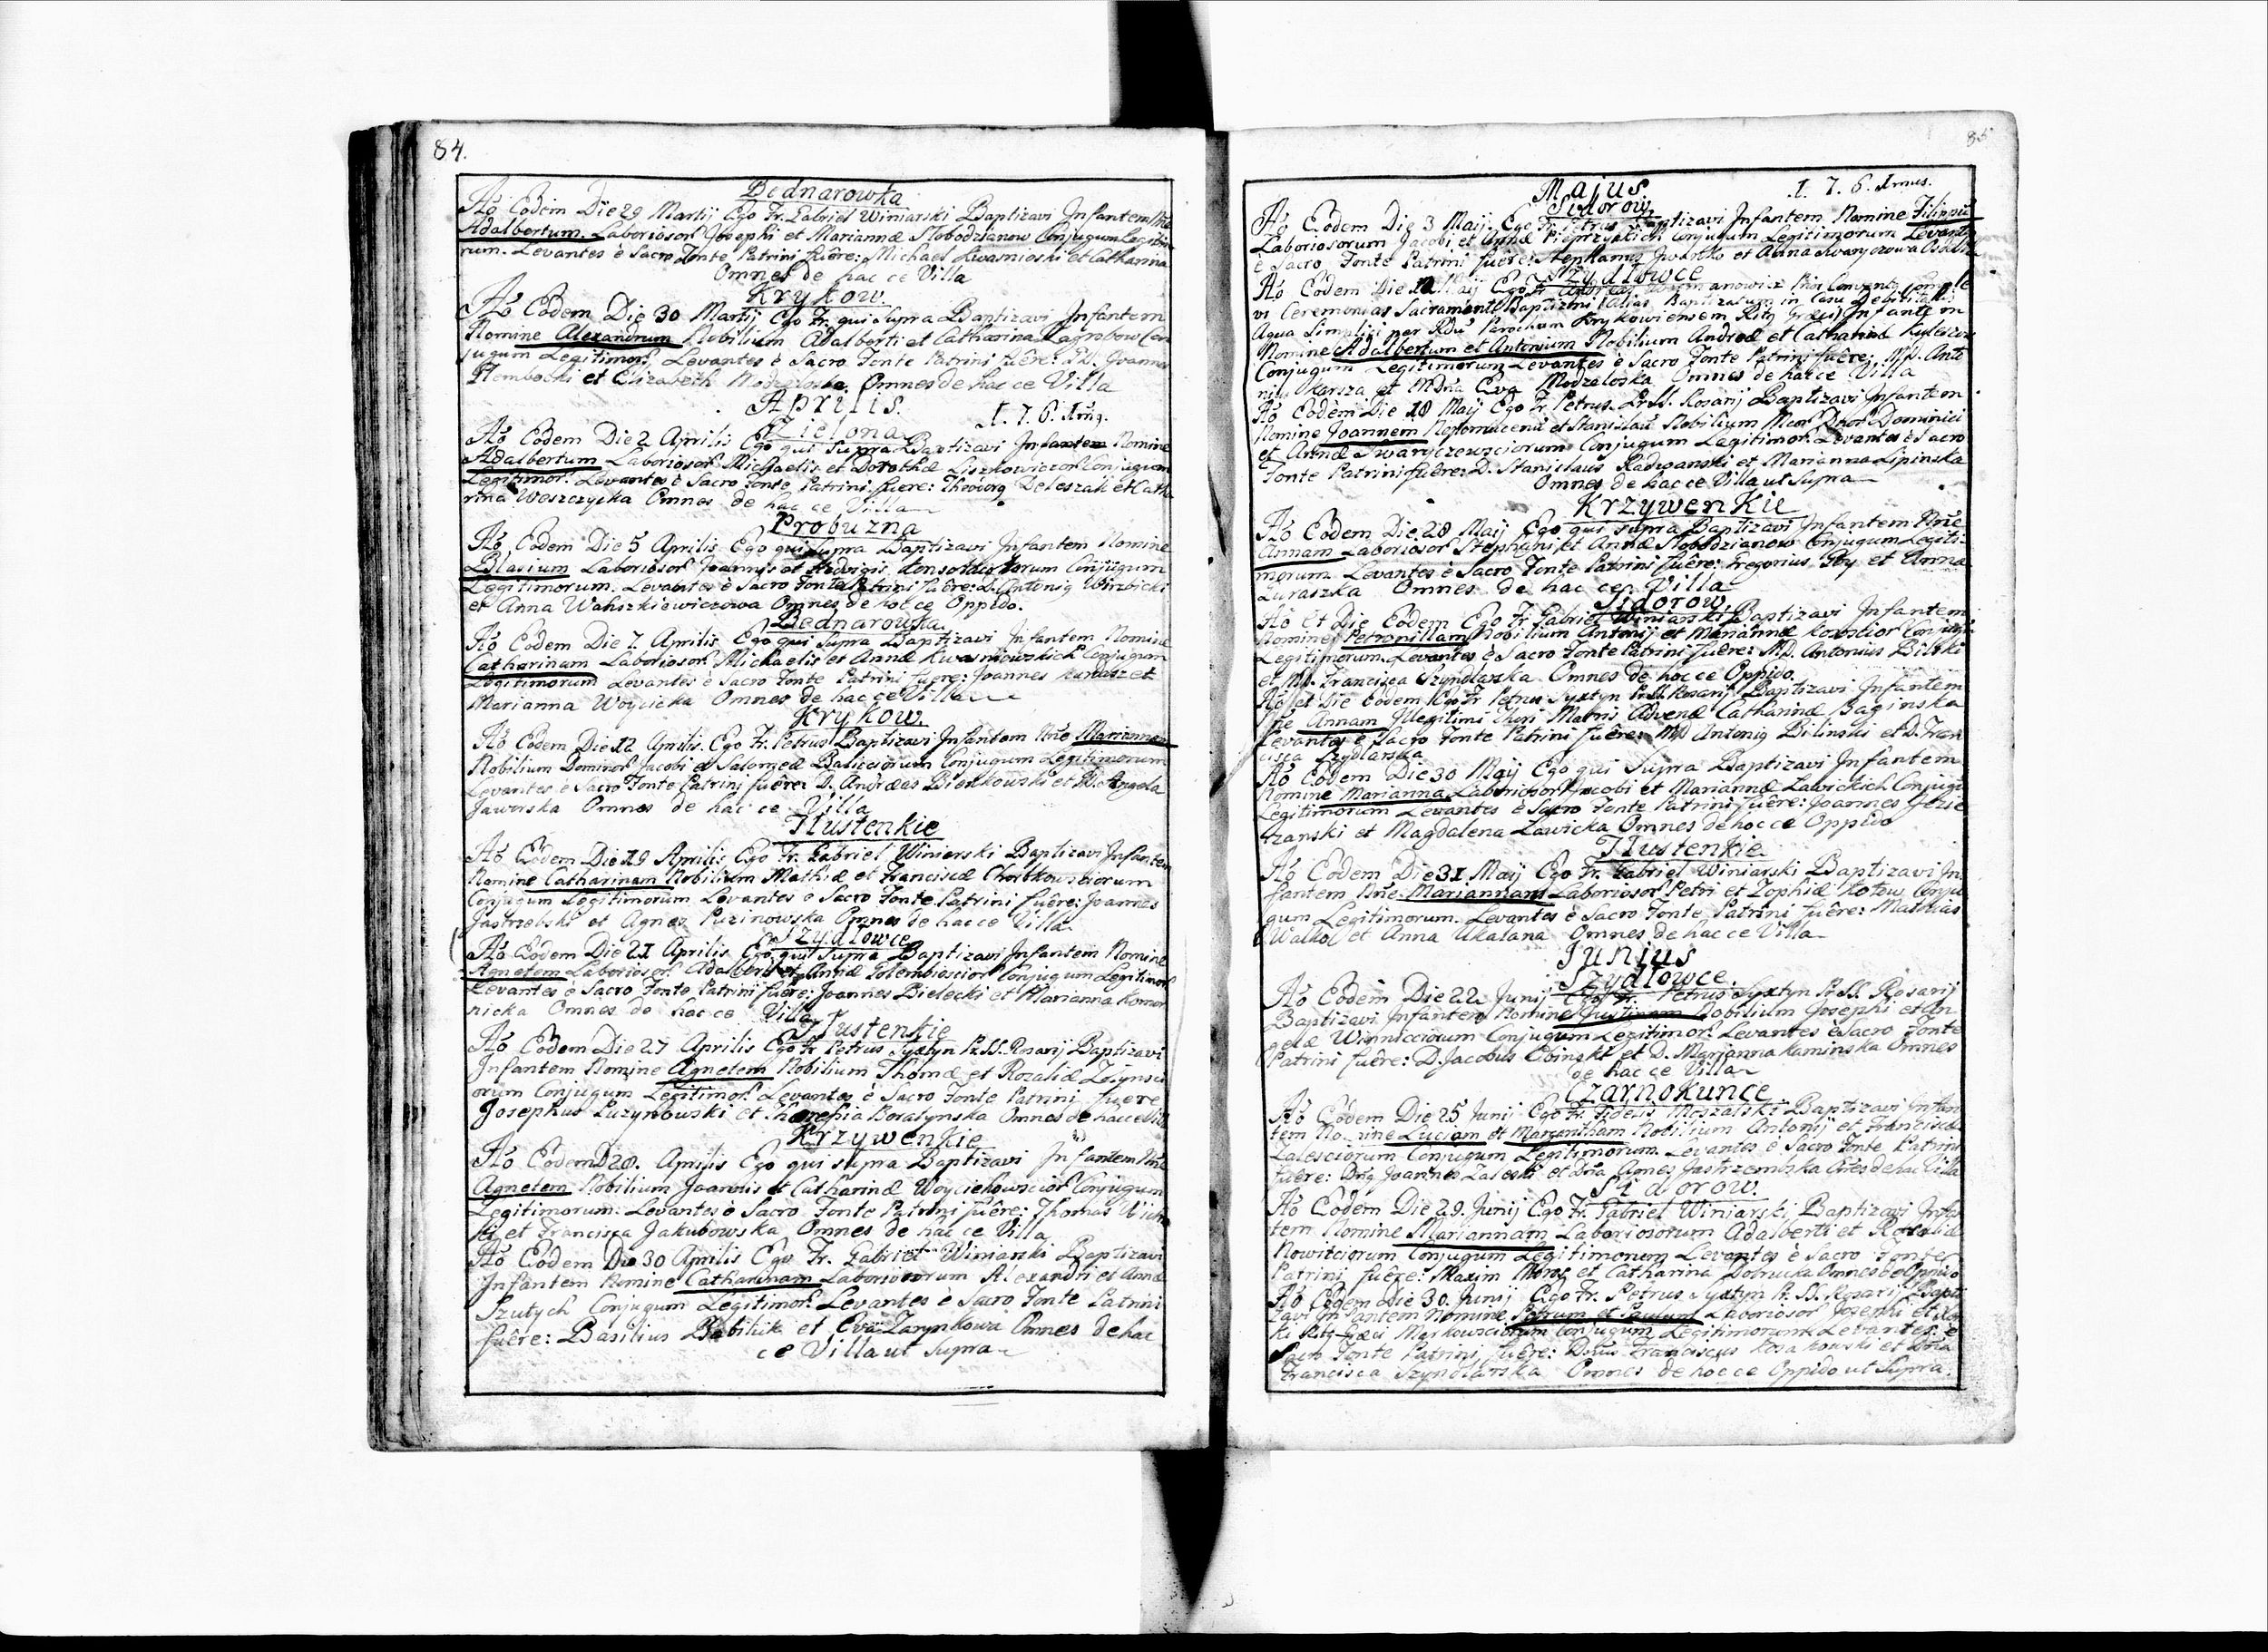 84.
Bednarowka
Aō Eodem Die 29 Martij Ego Fr. Gabriel Winiarski Baptizavi Infantem Nñe
Adalbertum Laboriosor Josephi et Mariannæ Slobodzianow Conjugum Legitimo
rum. Levantes è Sacro Fonte Patrini fuêre: Michael Kwasnioski et Catharina
Omnes de hac ce Villa
Krykow.
Aō Eodem Die 30 Martij Ego Fr. qui supra Baptizavi Infantem
Nomine Alexandrum Nobilium Adalberti et Catharinæ Zagrobow Con
jugum Legitimor. Levantes è Sacro Fonte Patrini fuêre: Joannes
et Elizabeth Omnes de hac ce Villa
Aprilis.
1. 7. 6.
Zielona
Aō Eodem Die 2 Aprilis Ego qui Supra Baptizavi Infantem Nomine
Adalbertum Laboriosor Michaelis et Dorothæ Liszkowiczor Conjugum
Legitimor. Levantes è Sacro Fonte Patrini fuere: Theodorg Deleszak et Catha
rina Woszczycka Omnes de hac ce Villa
Probuzna
Aō Eodem Die 5 Aprilis Ego qui Supra Baptizavi Infantem Nomine
Blasium Laboriosor Joannis et Hedvigis Conjugum
Legitimorum. Levantes è Sacro Fonte Patrini fuêre: D. Antonig Wirzbicki
et Anna Wahszkiewiczowa Omnes de hoc ce Oppido.
Bednarowka
Aō Eodem Die 7 Aprilis Ego qui Supra Baptizavi Infantem Nomine
Catharinam Laboriosor Michaelis et Annæ Kwasniowskich Conjugum
Legitimorum Levantes è Sacro Fonte Patrini fuere: Joannes et
Marianna Woycicka Omnes de hac ce Villa
Krykow.
Aō Eodem Die 12 Aprilis Ego Fr. Petrus Baptizavi Infantem Nñe Mariannam
Nobilium Dominor Jacobi et Salomeæ Conjugum Legitimorum
Levantes è Sacro Fonte Patrini fuêre: D. Andreas Bienkowski et D. Angela
Jaworska Omnes de hac ce Villa
Tlustenkie
Aō Eodem Die 19 Aprilis Ego Fr. Gabriel Winierski Baptizavi Infantem
Nomine Catharinam Nobilium Mathiæ et Franciscæ
Conjugum Legitimorum Levantes è Sacro Fonte Patrini fuêre: Joannes
Jastrzebski et Agnes Puzinowska Omnes de hac ce Villa
Szydlowce
Aō Eodem Die 21 Aprilis Ego qui Supra Baptizavi Infantem Nomine
Agnetem Laboriosor Adalberti et Annæ Golembioscior Conjugum Legitimor
Levantes è Sacro Fonte Patrini fuêre: Joannes Bielecki et Marianna Komor
nicka Omnes de hac ce Villa
Tlustenkie
Aō Eodem Die 27 Aprilis Ego Fr. Petrus Syxtyn Pr. SS. Rosarij Baptizavi
Infantem Nomine Agnetem Nobilium Thomæ et Rozaliæ
orum Conjugum Legitimor Levantes è Sacro Fonte Patrini fuere
Josephus Puzynowski et Theressia Boratynska Omnes de hac ce Villa
Krzywenkie
Aō Eodem D 28. Aprilis Ego qui supra Baptizavi Infantem Nñe
Agnetem Nobilium Joannis et Catharinæ Woyciehowscior Conjugum
Legitimorum: Levantes è Sacro Fonte Patrini fuêre: Thomas
ki et Francisca Jakubowska Omnes de hac ce Villa
Aō Eodem Die 30 Aprilis Ego Fr. Gabriel Winiarski Baptizavi
Infantem Nomine Catharinam Laboriosorum Alexandri et Annæ
Szutych Conjugum Legitimor Levantes è Sacro Fonte Patrini
fuêre: Basilius Babiliik et Eva Zarynkowa Omnes de hac
ce Villa ut supra
85
Majus.
1. 7. 6. Annus.
Sidorow.
Aō Eodem Die 3 Maij Ego Fr. Petrus Baptizavi Infantem Nomine Filippu
Laboriosorum Jacobi et Annæ Conjugum Legitimorum Levantes
è Sacro Fonte Patrini fuere: Stephanus Jwanko et Anna
Szydlowce
Aō Eodem Die Maij Ego Fr Andreas
vi Ceremonias Sacramenti Baptizmi alias Baptizatum in Casu Debilitatis
Aqua Simplici per Rdū Parochum Krykowiensem Ritg Græci Infantem
Nomine Adalbertum et Antonium Nobilium Andreæ et Catharinæ
Conjugum Legitimorum Levantes è Sacro Fonte Patrini fuêre: Mg. Anto
nig Karsza et Mdna Eva Modzeloska Omnes de hac ce Villa
Aō Eodem Die 18 Maij Ego Fr. Petrus Pr. SS. Rosarij Baptizavi Infantem
Nomine Joannem Nepomucenu et Stanislau Nobilium Mcor Dnor Dominici
et Annæ Conjugum Legitimor. Levantes è Sacro
Fonte Patrini fuêre: D. Stanislaus Radwanski et Marianna Lipinska
Omnes de hac ce Villa ut Supra
Krzywenkie
Aō Eodem Die 28 Maij Ego qui supra Baptizavi Infantem Nñe
Annam Laboriosor Stephani et Annæ Slobodzianow Conjugum Legiti-
morum Levantes è Sacro Fonte Patrini fuêre: Gregorius et Anna
Luraszka Omnes de hac ce Villa
Sidorow.
Aō Et Die Eodem Ego Fr Gabriel Winiarski Baptizavi Infantem
Nomine Petronillam Nobilium Antonij et Mariannæ Conjugu
Legitimorum. Levantes è Sacro Fonte Patrini fuêre: M.D. Antonius Bilski
et MD. Francisca Szyndlarska Omnes de hoc ce Oppido.
Aō et Die Eodem Ego Fr Petrus Syxtyn Pr. SS. Rosarij Baptizavi Infantem
Nñe Annam Illegitimi Thori Matris Advenæ Catharinæ Baginska
Levantes è Sacro Fonte Patrini fuêre: MD Antonig Bilinski et D. Fran
cisca Szydlarska
Aō Eodem Die 30 Maij Ego qui Supra Baptizavi Infantem
Nomine Marianna Laboriosor Jacobi et Mariannæ Lawickich Conjugu
Legitimorum Levantes è Sacro Fonte Patrini fuêre: Joannes Jezie
rzanski et Magdalena Lawicka Omnes de hoc ce Oppido
Tlustenkie
Aō Eodem Die 31 Maij Ego Fr Gabriel Winiarski Baptizavi In
fantem Nñe Mariannam Laboriosor Petri et Zophiæ Kotow Conju
gum Legitimorum. Levantes è Sacro Fonte Patrini fuêre: Mathias
Walkol et Anna Ukalana Omnes de hac ce Villa
Junius
Szydlowce
Aō Eodem Die 22 Junij Ego Fr. Petrus Syxtyn Pr. SS. Rosarij
Baptizavi Infantem Nomine Justinam Nobilium Josephi et An
gelæ Winnicciorum Conjugum Legitimor Levantes è Sacro Fonte
Patrini fuêre: D. Jacobus et D. Marianna Kaminska Omnes
de hac ce Villa
Czarnokunce
Aō Eodem Die 25 Junij Ego Fr. Fidelis Moszalski Baptizavi Infan
tem Nomine Luciam et Nobilium Antonij et Franciscæ
Zalesciorum Conjugum Legitimorum. Levantes è Sacro Fonte Patrini
fuêre: Dng Joannes Zaleski et Dna Agnes Jastrzembska Oñes de hac Villa
Sidorow.
Aō Eodem Die 29. Junij Ego Fr. Gabriel Winiarski Baptizavi Infan
tem Nomine Mariannam Laboriosorum Adalberti et Rozaliæ
Nowicciorum Conjugum Legitimorum Levantes è Sacro Fonte
Patrini fuêre: Maxim et Catharina Omnes de Oppido
Aō Eodem Die 30. Junij Ego Fr. Petrus Syxtyn Pr. SS. Rosarij Bapti
zavi Infantem Nomine Petrum et Paulum Laboriosor Josephi et
Ritg Græci Markowsciorum Conjugum Legitimorum Levantes è
Sacro Fonte Patrini fuêre: Franciscus et Dna
Francisca Szyndlarska Omnes de hoc ce Oppido ut Supra.